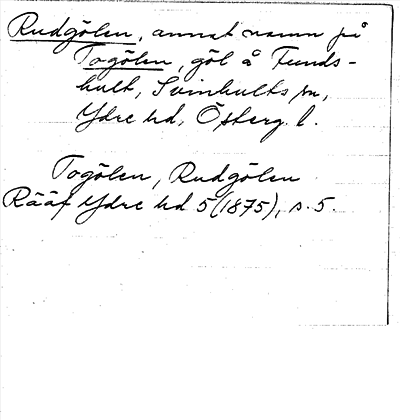 Rudgölen, annat namn på
Togölen, göl å Funds-
hult, Svinhults sn,
Ydre hd, Österg. l.
Togölen, Rudgölen
Rääf Ydre hd 5 (1875), s. 5.